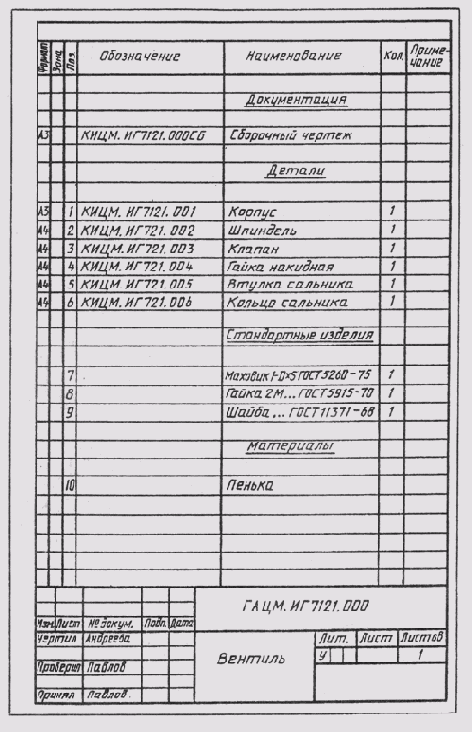 Формат Зона Поз. Обозначение Наименование Кол. Приме-чание
Документация
А3 КИЦМ. ИГ7121.000СБ Сборочный чертеж
Детали
А3 1 КИЦМ. ИГ7121. 001 Корпус 1
А4 2 КИЦМ. ИГ721. 002 Шпиндель 1
А4 3 КИЦМ. ИГ721. 003 Клапан 1
А4 4 КИЦМ. ИГ721. 004 Гайка накидная 1
А4 5 КИЦМ. ИГ721. 005 Втулка сальника 1
А4 6 КИЦМ. ИГ721. 006 Кольцо сальника 1
Стандартные изделия
7 Маховик 1-D×S ГОСТ5260-75 1
8 Гайка 2М... ГОСТ5915-70 1
9 Шайба ... ГОСТ11371-68 1
Материалы
10 Пенька
ГАЦМ. ИГ7121. 000
Изм. Лист № докум. Подп. Дата
Чертил Андреева
Вентиль
Лит. Лист Листов
У 1
Проверил Павлов
Принял Павлов.